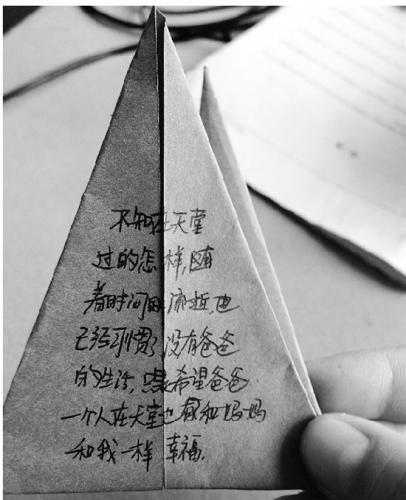 不知在天堂
过的怎样,随
着时间的流逝,也
已经习惯了没有爸爸
的生活,希望爸爸
一个人在天堂也和妈妈
和我一样幸福.